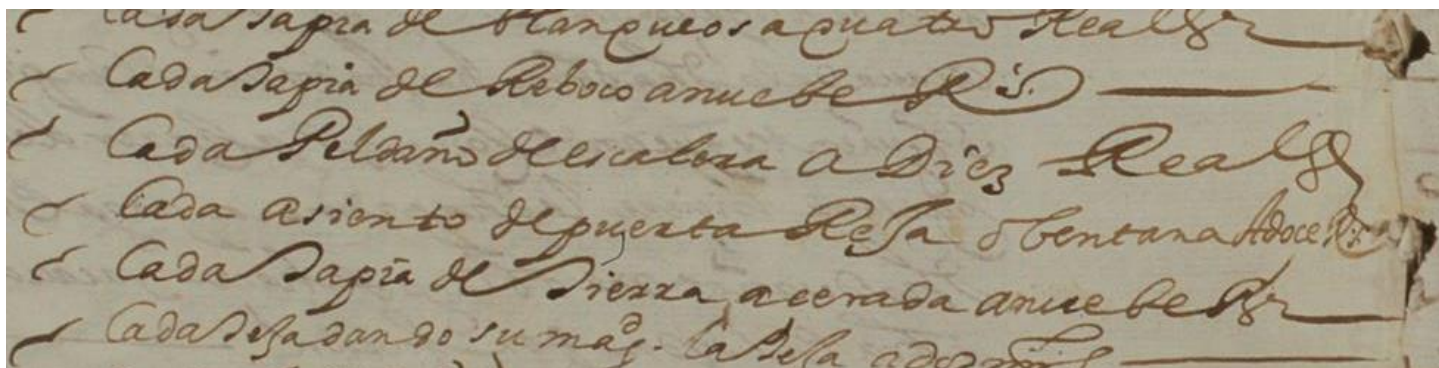 Cada tapia de blanqueos a quatro Reales
Cada tapia de Reboco a nuebe Rs.
Cada Peldaño de escalera a Diez Reales
Cada asiento de puerta Reja o bentana A doce Rs.
Cada tapia de tierra acerada a nuebe Rs
Cada teja dando su magd. la teja a dos mrs